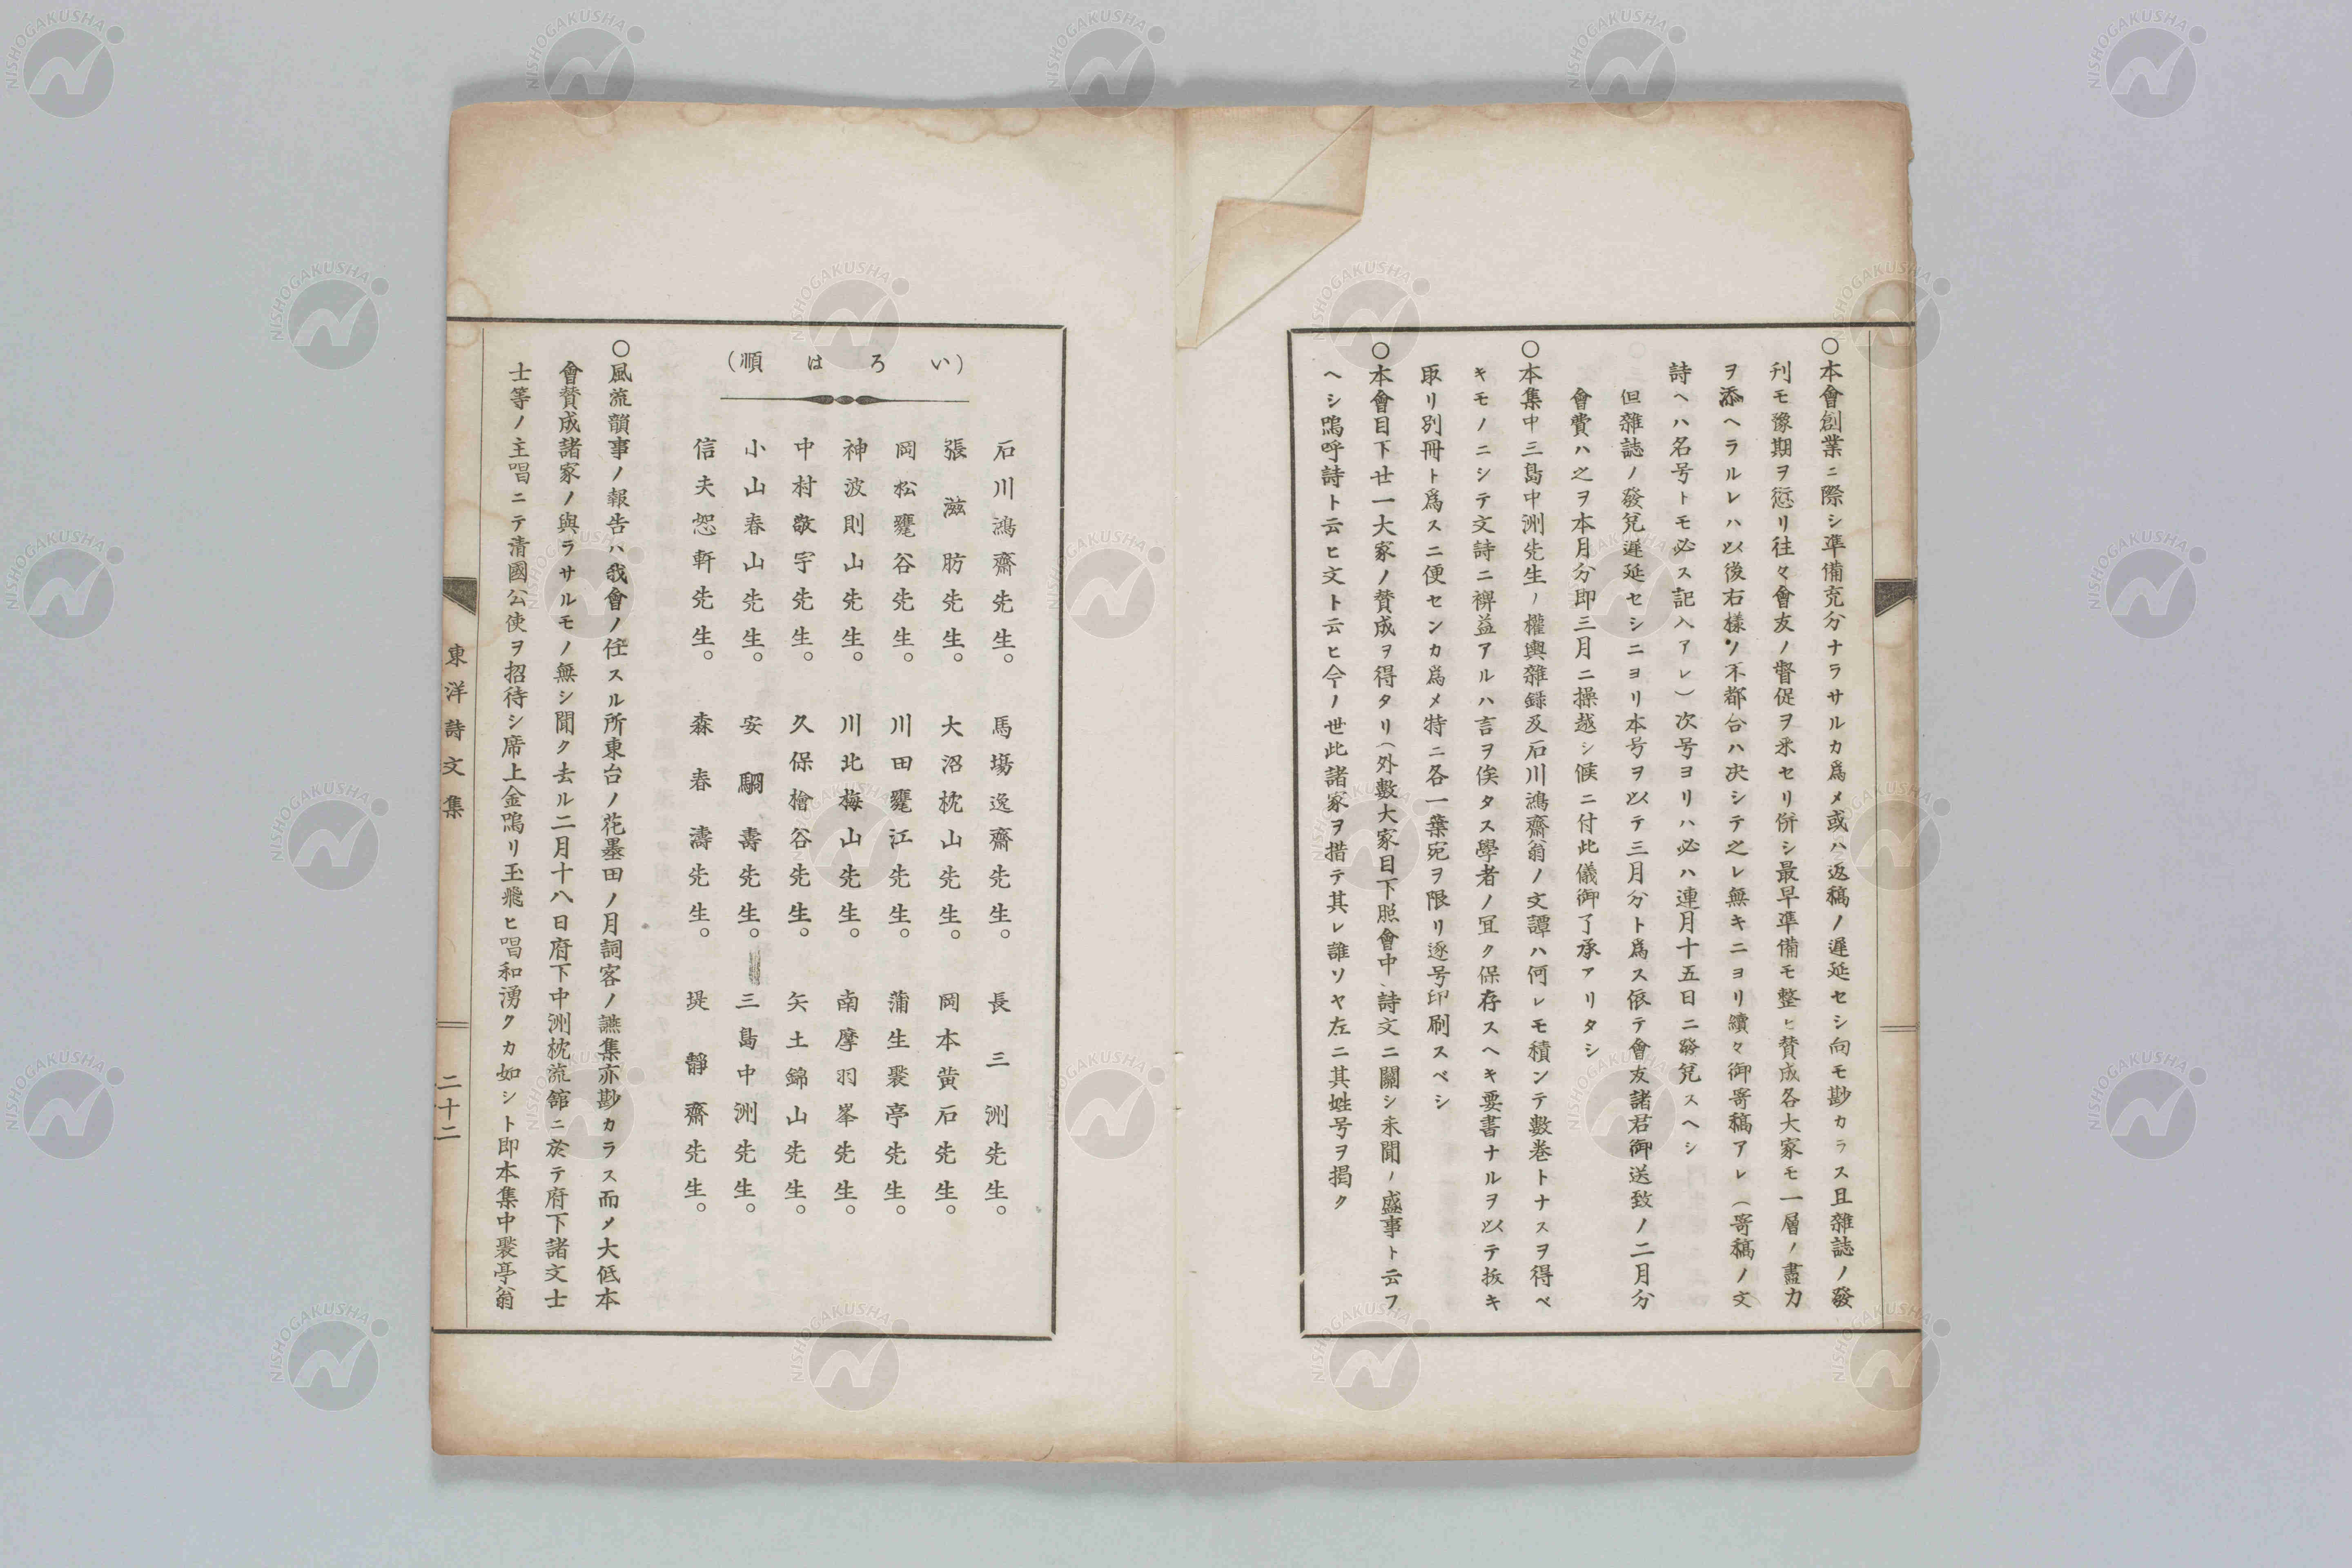 ○本會創業ニ際シ準備充分ナラサルカ爲メ或ハ返稿ノ遲延セシ向モ尠カラス且雜誌ノ發
刋モ豫期ヲ愆リ往々會友ノ督促ヲ釆セリ併シ最早準備モ整ヒ賛成各大家モ一層ノ盡力
ヲ添ヘラルレハ以後右樣ノ不都合ハ决シテ之レ無キニヨリ續々御寄稿アレ（寄稿ノ文
詩ヘハ名号トモ必ス記入アレ）次号ヨリハ必ハ連月十五日ニ發兌スヘシ
但雜誌ノ發兌遲延セシニヨリ本号ヲ以テ三月分ト爲ス依テ會友諸君御送致ノ二月分
會費ハ之ヲ本月分即三月ニ操越シ候ニ付此儀御了承アリタシ
○本集中三島中洲先生ノ權輿雜録及石川鴻齋翁ノ文譚ハ何レモ積ンテ數巻トナスヲ得ベ
キモノニシテ文詩ニ裨益アルハ言ヲ俟タス學者ノ冝ク保存スヘキ要書ナルヲ以テ抜キ
取リ別冊ト爲スニ便センカ爲メ特ニ各一葉宛ヲ限リ逐号印刷スベシ
○本會目下廿一大家ノ賛成ヲ得タリ（外數大家目下照會中、詩文ニ關シ未聞ノ盛事ト云フ
ヘシ嗚呼詩ト云ヒ文ト云ヒ今ノ世此諸家ヲ措テ其レ誰ソヤ左ニ其姓号ヲ掲ク
（いろは順）
石川鴻齋先生。 馬塲逸齋先生。 長三洲先生。
張滋昉先生。 大沼枕山先生。 岡本黄石先生。
岡松甕谷先生。 川田甕江先生。 蒲生褧亭先生。
神波則山先生。 川北梅山先生。 南摩羽峯先生。
中村敬宇先生。 久保檜谷先生。 矢土錦山先生。
小山春山先生。 安駉壽先生。 三島中洲先生。
信夫恕軒先生。 森春濤先生。 堤靜齋先生。
○風流韻事ノ報告ハ我會ノ任スル所東台ノ花墨田ノ月詞客ノ讌集亦尠カラス而メ大低本
會賛成諸家ノ與ラサルモノ無シ聞ク去ル二月十八日府下中洲枕流舘ニ於テ府下諸文士
士等ノ主唱ニテ清國公使ヲ招待シ席上金鳴リ玉飛ヒ唱和湧クカ如シト即本集中褧亭翁
東洋詩文集
二十二